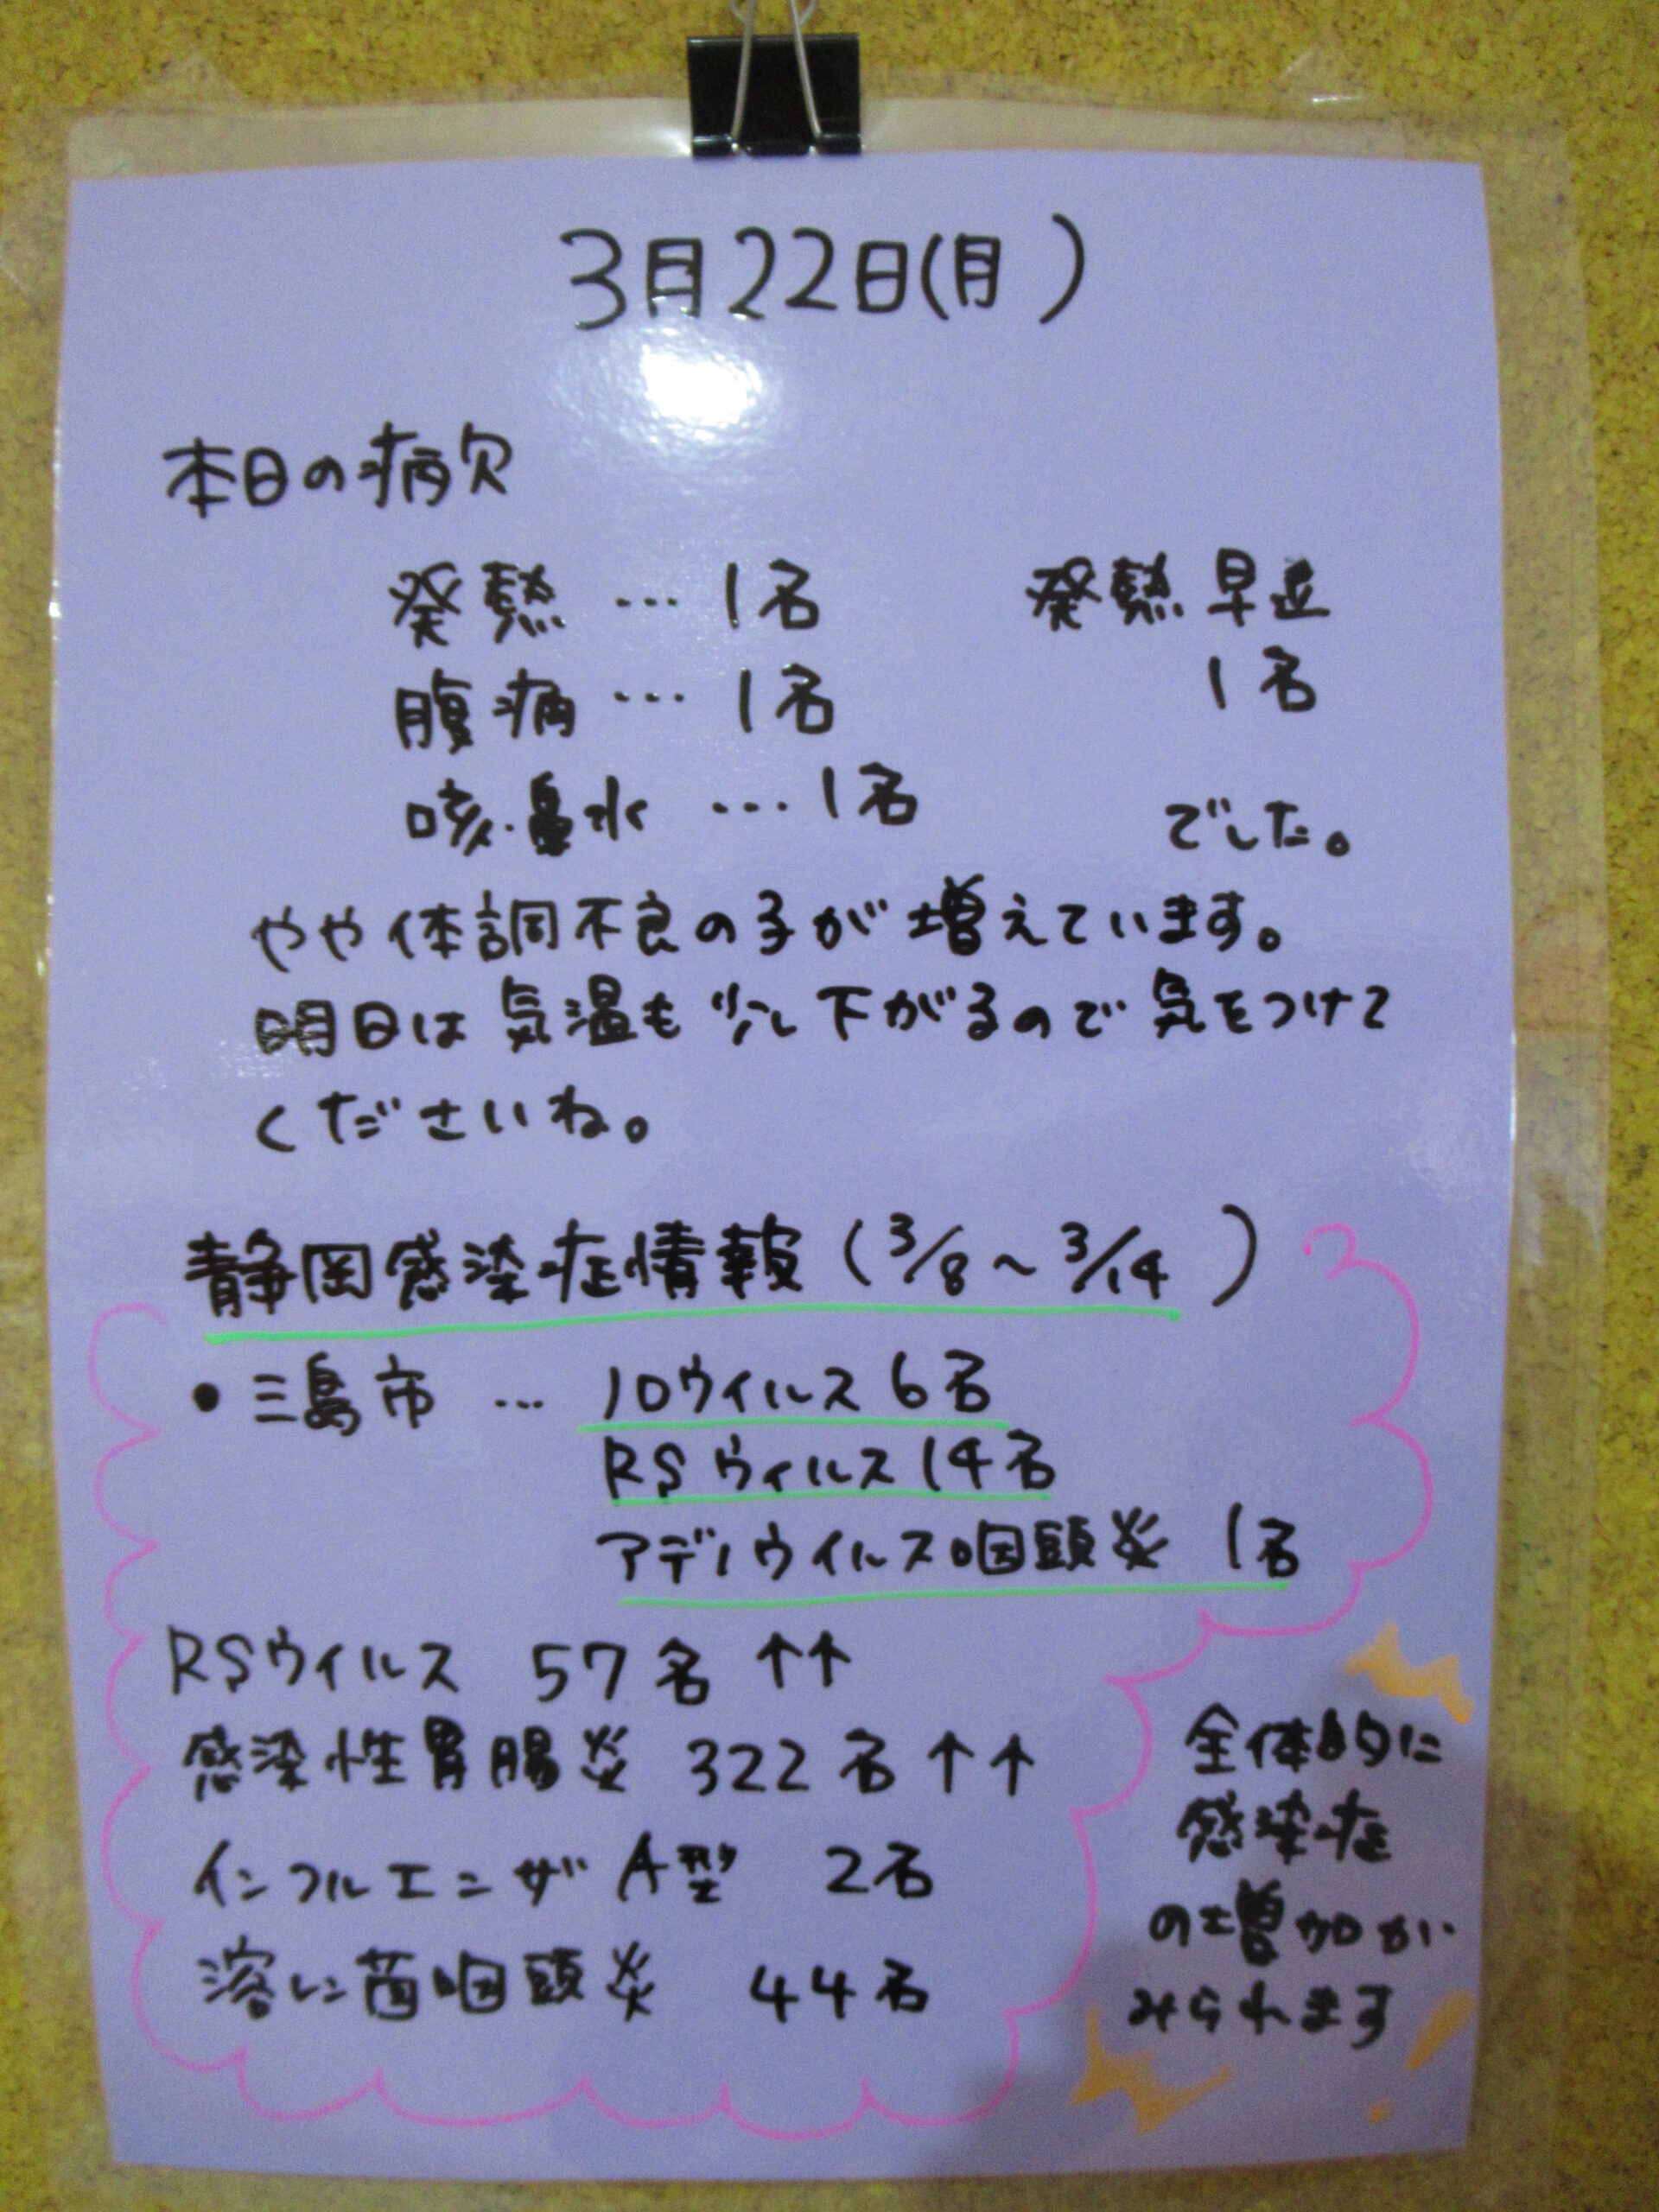 3月22日(月)
本日の病欠
発熱…1名
腹痛…1名
咳・鼻水…1名
発熱早退
1名
でした。
やや体調不良の子が増えています。
明日は気温も少し下がるので気をつけて
くださいね。
静岡感染症情報(3/8〜3/14)
●三島市…ノロウイルス6名
RSウィルス14名
アデノウイルス咽頭炎 1名
RSウイルス 57名↑↑
感染性胃腸炎 322名↑↑
インフルエンザA型 2名
溶レン菌咽頭炎 44名
全体的に
感染症
の増加が
みられます